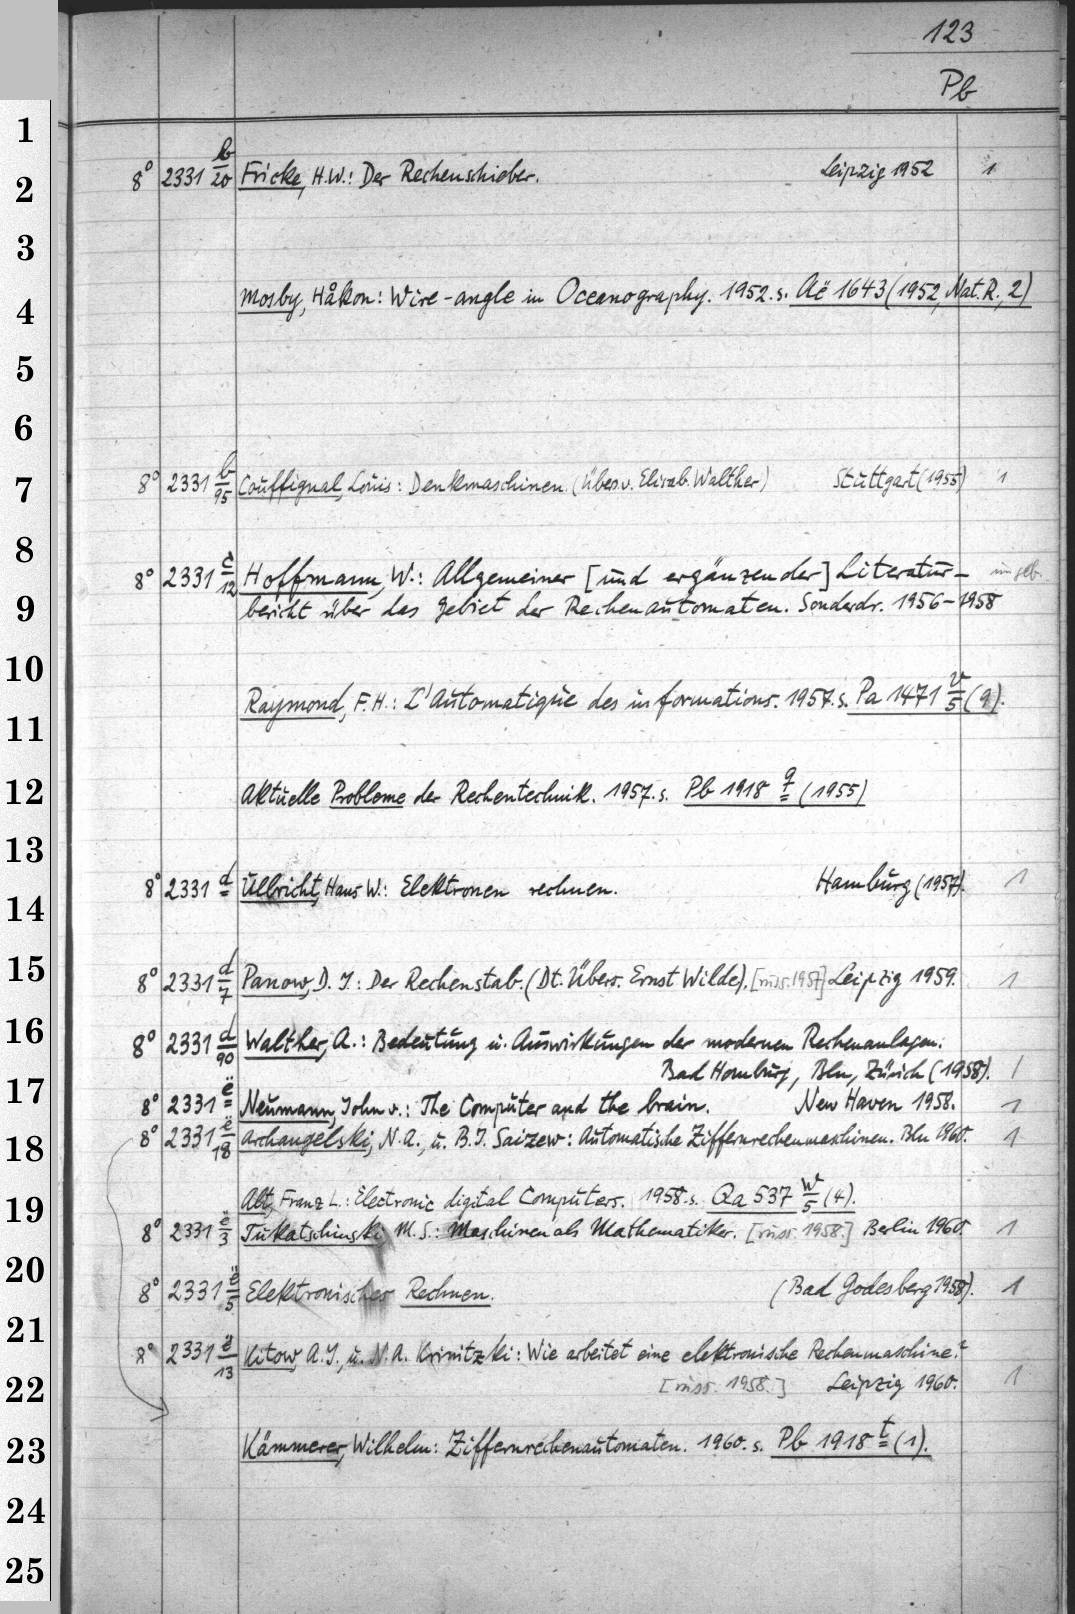 123
Pb
1
8° 2331 b/20 Fricke, H.W.: Der Rechenschieber. Leipzig 1952 1
2
3
Mosby, Håkon: Wire-angle in Oceanography. 1952. s. Aë 1643 (1952, Nat. R., 2)
4
5
6
8° 2331 b/95 Couffignal, Louis: Denkmaschinen. (Übers. v. Elisab. Walther) Stuttgart (1955) 1
7
8
8° 2331 c/12 Hoffmann, W.: Allgemeiner [und ergänzender] Literatur-
9
bericht über das Gebiet der Rechenautomaten. Sonderdr. 1956-1958
10
Raymond, F.H.: L'Automatique des informations. 1957. s. Pa 1471 v/5 (9).
11
12
Aktuelle Probleme der Rechentechnik. 1957. s. Pb 1918 q (1955)
13
8° 2331 d Ullbricht, Hans W.: Elektronen rechnen. Hamburg (1957). 1
14
15
8° 2331 d/7 Panow, D. J.: Der Rechenstab. (Dt. Übers. Ernst Wilde). [russ. 1957] Leipzig 1959. 1
16
8° 2331 d/90 Walther, A.: Bedeutung u. Auswirkungen der modernen Rechenanlagen.
Bad Homburg, Bln, Zürich (1958). 1
17
8° 2331 ë Neumann, John v.: The Computer and the brain. New Haven 1958. 1
18
8° 2331 ë/18 Archangelski, N.A., u. B.I. Saizew: Automatische Ziffernrechenmaschinen. Bln 1960. 1
Alt, Franz L.: Electronic digital Computers. 1958. s. Qa 537 w/5 (4).
19
8° 2331 ë/3 Tukatschinski M.S.: Maschinen als Mathematiker. [russ. 1958.] Berlin 1960. 1
20
8° 2331 ë/5 Elektronisches Rechnen. (Bad Godesberg 1958). 1
21
8° 2331 ë/13 Kitow A.I., u. N.A. Krinitzki: Wie arbeitet eine elektronische Rechenmaschine?
22
[russ. 1958.] Leipzig 1960. 1
23
Kämmerer, Wilhelm: Ziffernrechenautomaten. 1960. s. Pb 1918 t (1).
24
25